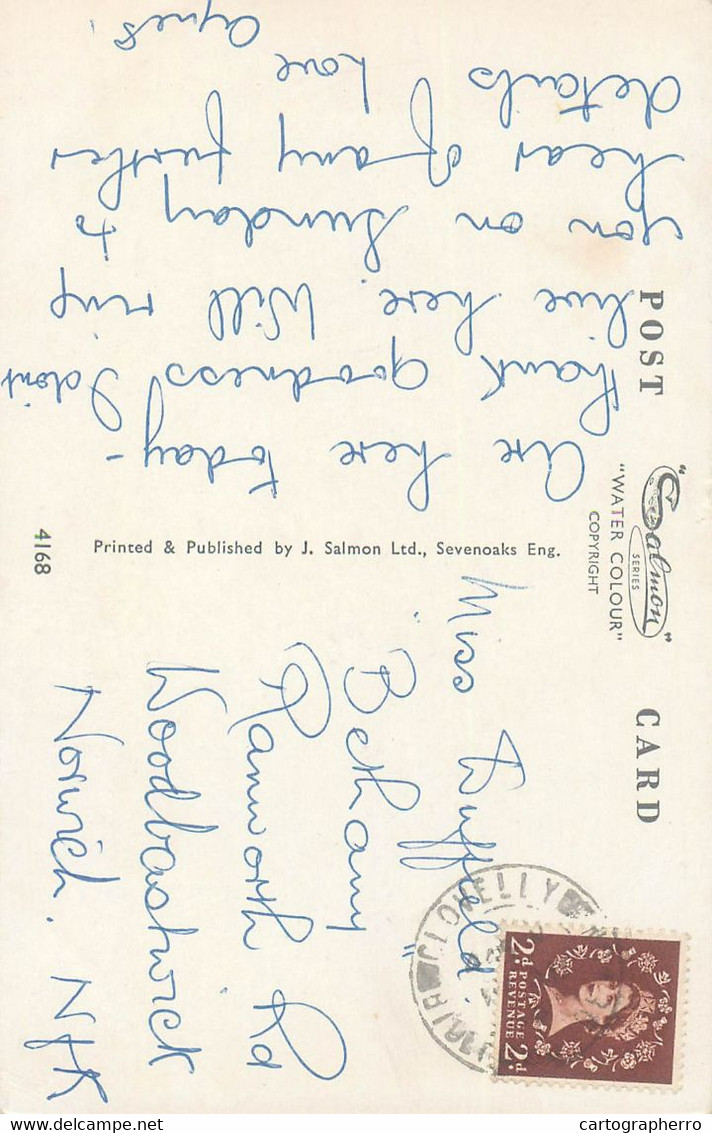 POST CARD
"Salmon"
SERIES
"WATER COLOUR"
COPYRIGHT
are here today -
thank goodness I dont
live here. Will ring
you on Sunday to
hear of any further
details
Love
Agnes.
Printed & Published by J. Salmon Ltd., Sevenoaks Eng.
4168
Miss Duffield.
"Bethany"
Ranworth Rd
Woodbastwick
Norwich. Nfk
CLOVELLY
2d POSTAGE REVENUE 2d
cartographerro